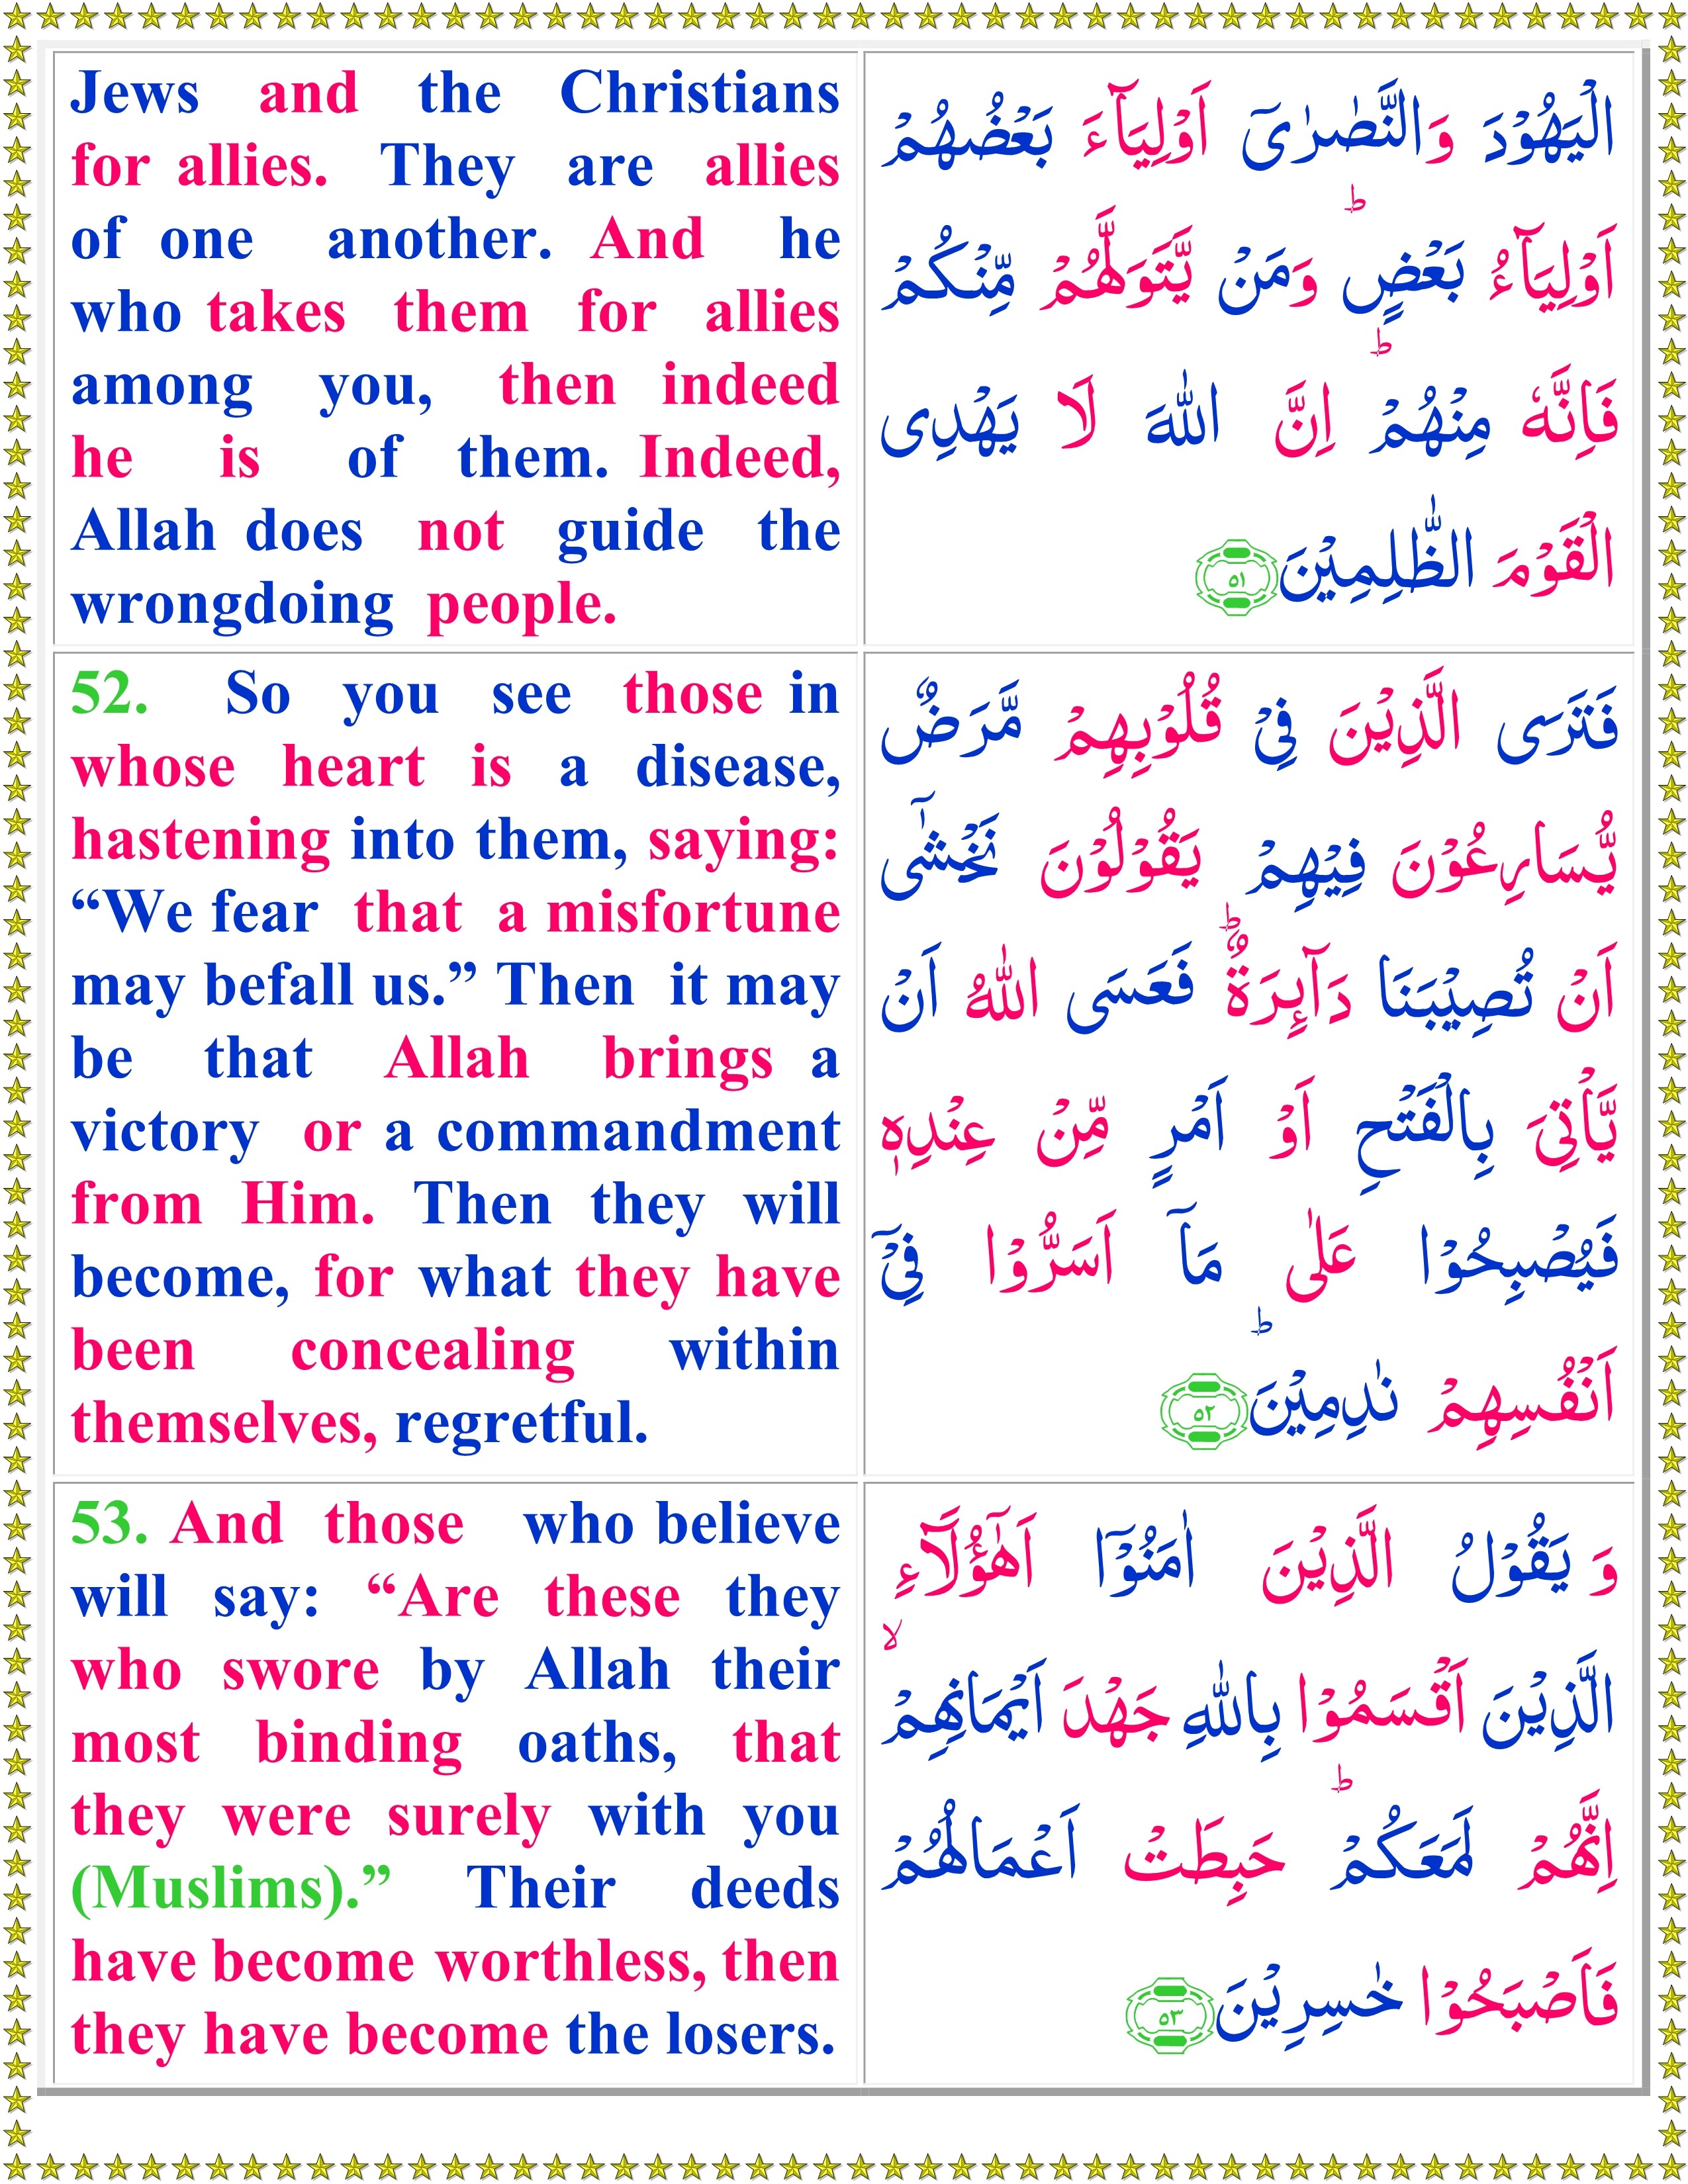 Jews and the Christians
for allies. They are allies
of one another. And he
who takes them for allies
among you, then indeed
he is of them. Indeed,
Allah does not guide the
wrongdoing people.
الْيَهُوْدَ وَالنَّصٰرٰىٓ اَوْلِيَآءَ بَعْضُهُمْ
اَوْلِيَآءُ بَعْضٍ ؕ وَمَنْ يَّتَوَلَّهُمْ مِّنْكُمْ
فَاِنَّهٗ مِنْهُمْ ؕ اِنَّ اللّٰهَ لَا يَهْدِى
الْقَوْمَ الظّٰلِمِيْنَ ٥١
52. So you see those in
whose heart is a disease,
hastening into them, saying:
“We fear that a misfortune
may befall us.” Then it may
be that Allah brings a
victory or a commandment
from Him. Then they will
become, for what they have
been concealing within
themselves, regretful.
فَتَرَى الَّذِيْنَ فِىْ قُلُوْبِهِمْ مَّرَضٌ
يُّسَارِعُوْنَ فِيْهِمْ يَقُوْلُوْنَ نَخْشٰٓى
اَنْ تُصِيْبَنَا دَآٮِٕرَةٌ ؕ فَعَسَى اللّٰهُ اَنْ
يَّاْتِىَ بِالْفَتْحِ اَوْ اَمْرٍ مِّنْ عِنْدِهٖ
فَيُصْبِحُوْا عَلٰى مَاۤ اَسَرُّوْا فِىْۤ
اَنْفُسِهِمْ نٰدِمِيْنَ ؕ ٥٢
53. And those who believe
will say: “Are these they
who swore by Allah their
most binding oaths, that
they were surely with you
(Muslims).” Their deeds
have become worthless, then
they have become the losers.
وَ يَقُوْلُ الَّذِيْنَ اٰمَنُوْۤا اَهٰٓؤُلَاۤءِ
الَّذِيْنَ اَقْسَمُوْا بِاللّٰهِ جَهْدَ اَيْمَانِهِمْ ۙ
اِنَّهُمْ لَمَعَكُمْ ؕ حَبِطَتْ اَعْمَالُهُمْ
فَاَصْبَحُوْا خٰسِرِيْنَ ٥٣